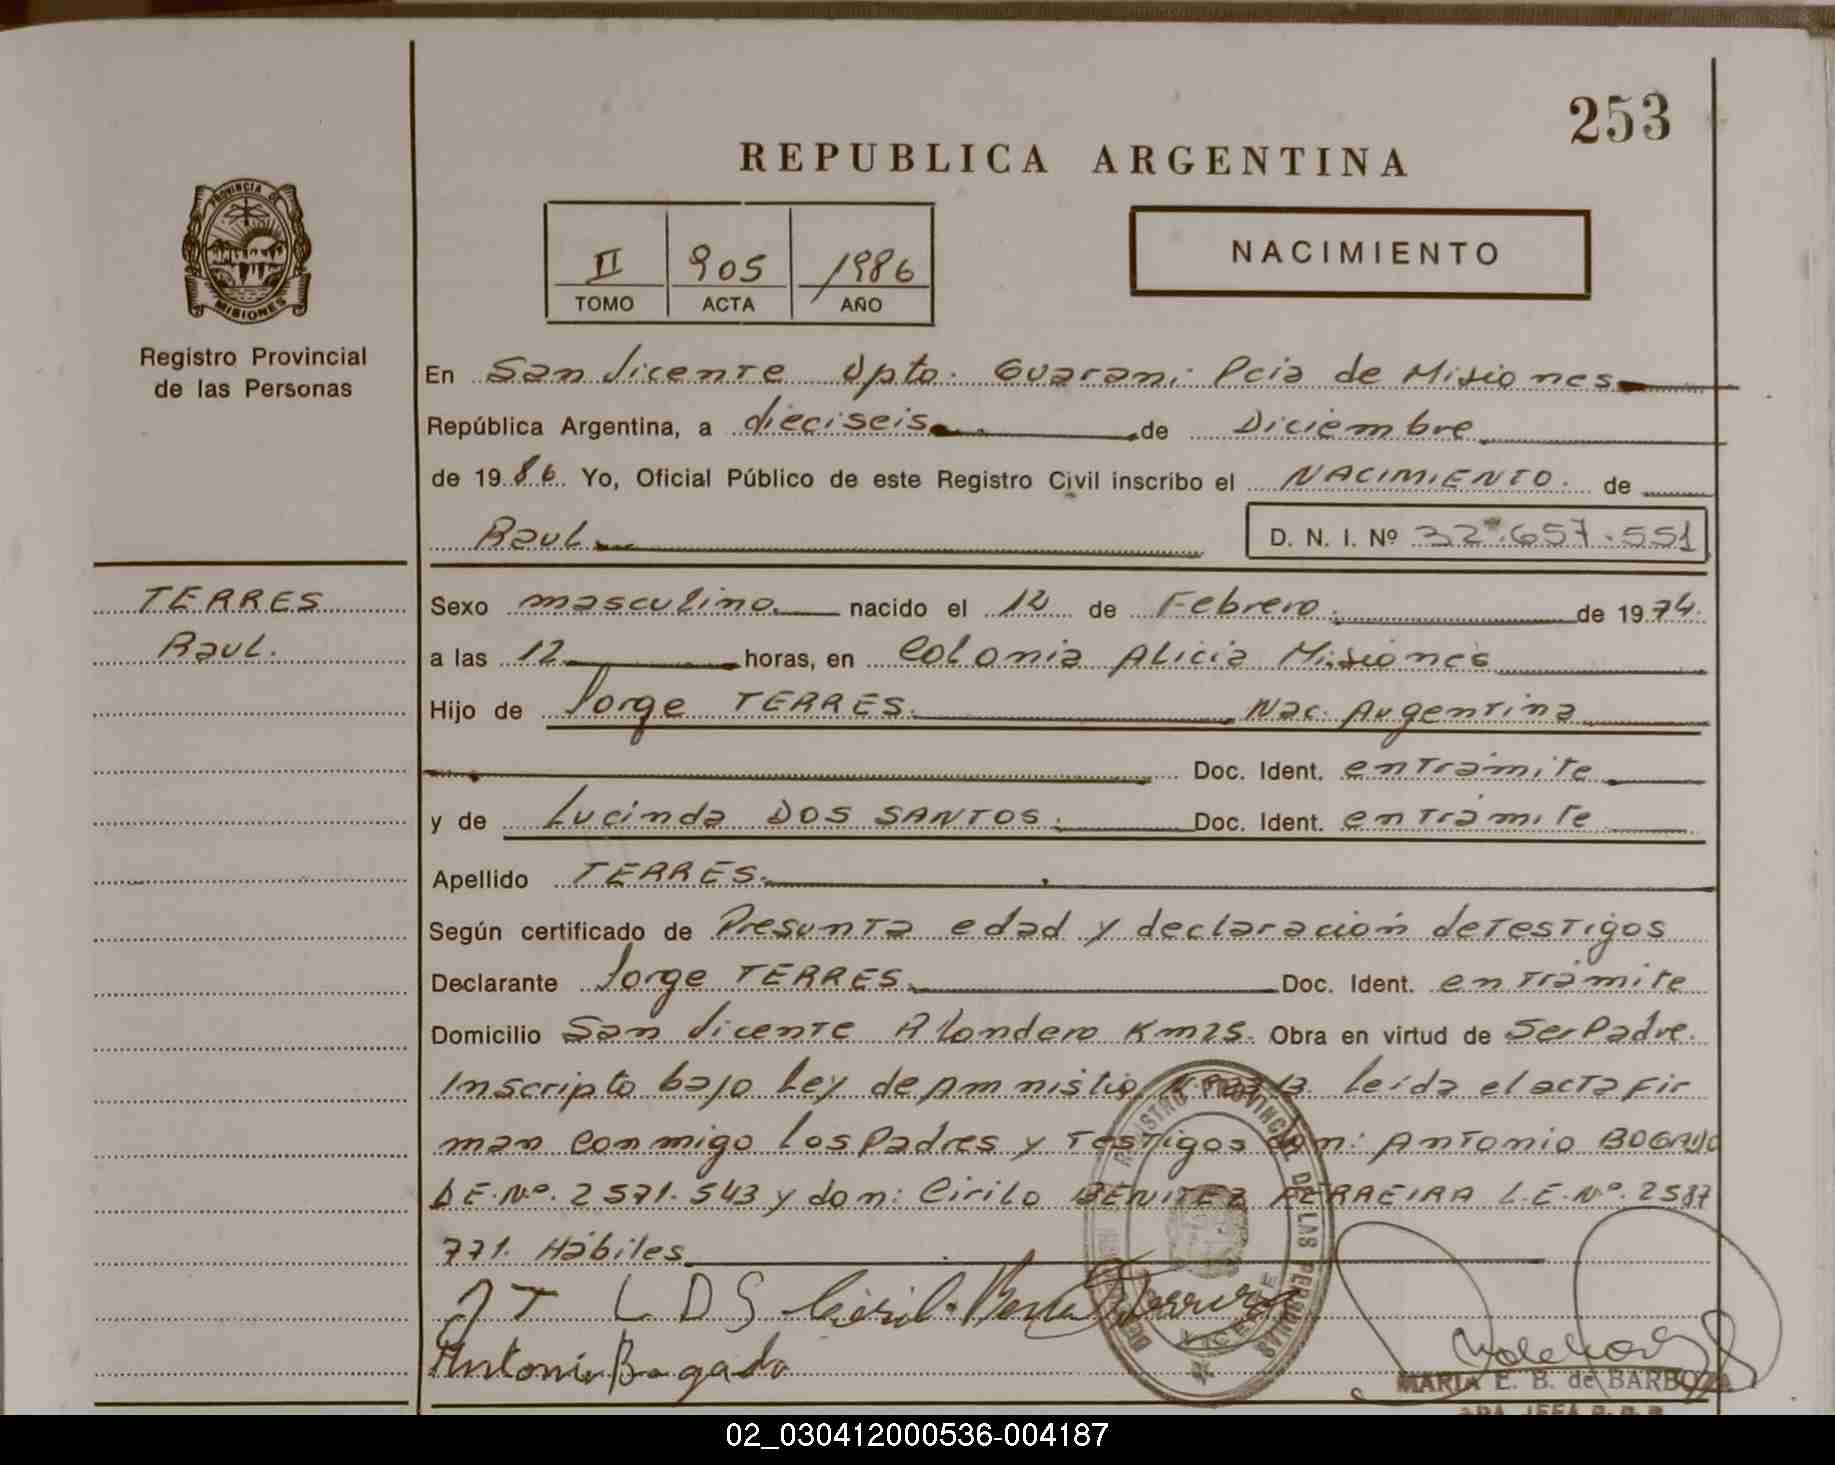 253
REPUBLICA ARGENTINA
PROVINCIA DE
MISIONES
Registro Provincial
de las Personas
II 905 1986
TOMO ACTA AÑO
NACIMIENTO
En San Vicente Dpto. Guarani Pcia de Misiones
República Argentina, a dieciseis de Diciembre
de 1986 Yo, Oficial Público de este Registro Civil inscribo el NACIMIENTO. de
Raul D. N. I. Nº 32.657.551
TERRES
Raul.
Sexo masculino nacido el 12 de Febrero de 1974.
a las 12 horas, en Colonia Alicia Misiones
Hijo de Jorge TERRES. Nac. Argentina
Doc. Ident. en Tramite
y de Lucinda DOS SANTOS. Doc. Ident. en Tramite
Apellido TERRES.
Según certificado de Presunta edad y declaración de Testigos
Declarante Jorge TERRES. Doc. Ident. en Tramite
Domicilio San Vicente Km 25. Obra en virtud de Ser Padre.
Inscripto bajo Ley de Amnistia Leida el acta fir
man conmigo los Padres y Testigos don: Antonio
Nº. 2571.543 y don: Cirilo BENITEZ FERREIRA L.E. Nº. 2587
771. Hábiles
J T L D S
Antonio Bogado
REGISTRO PROVINCIAL DE LAS PERSONAS
MARIA E. B. de BARBOZA
02_030412000536-004187